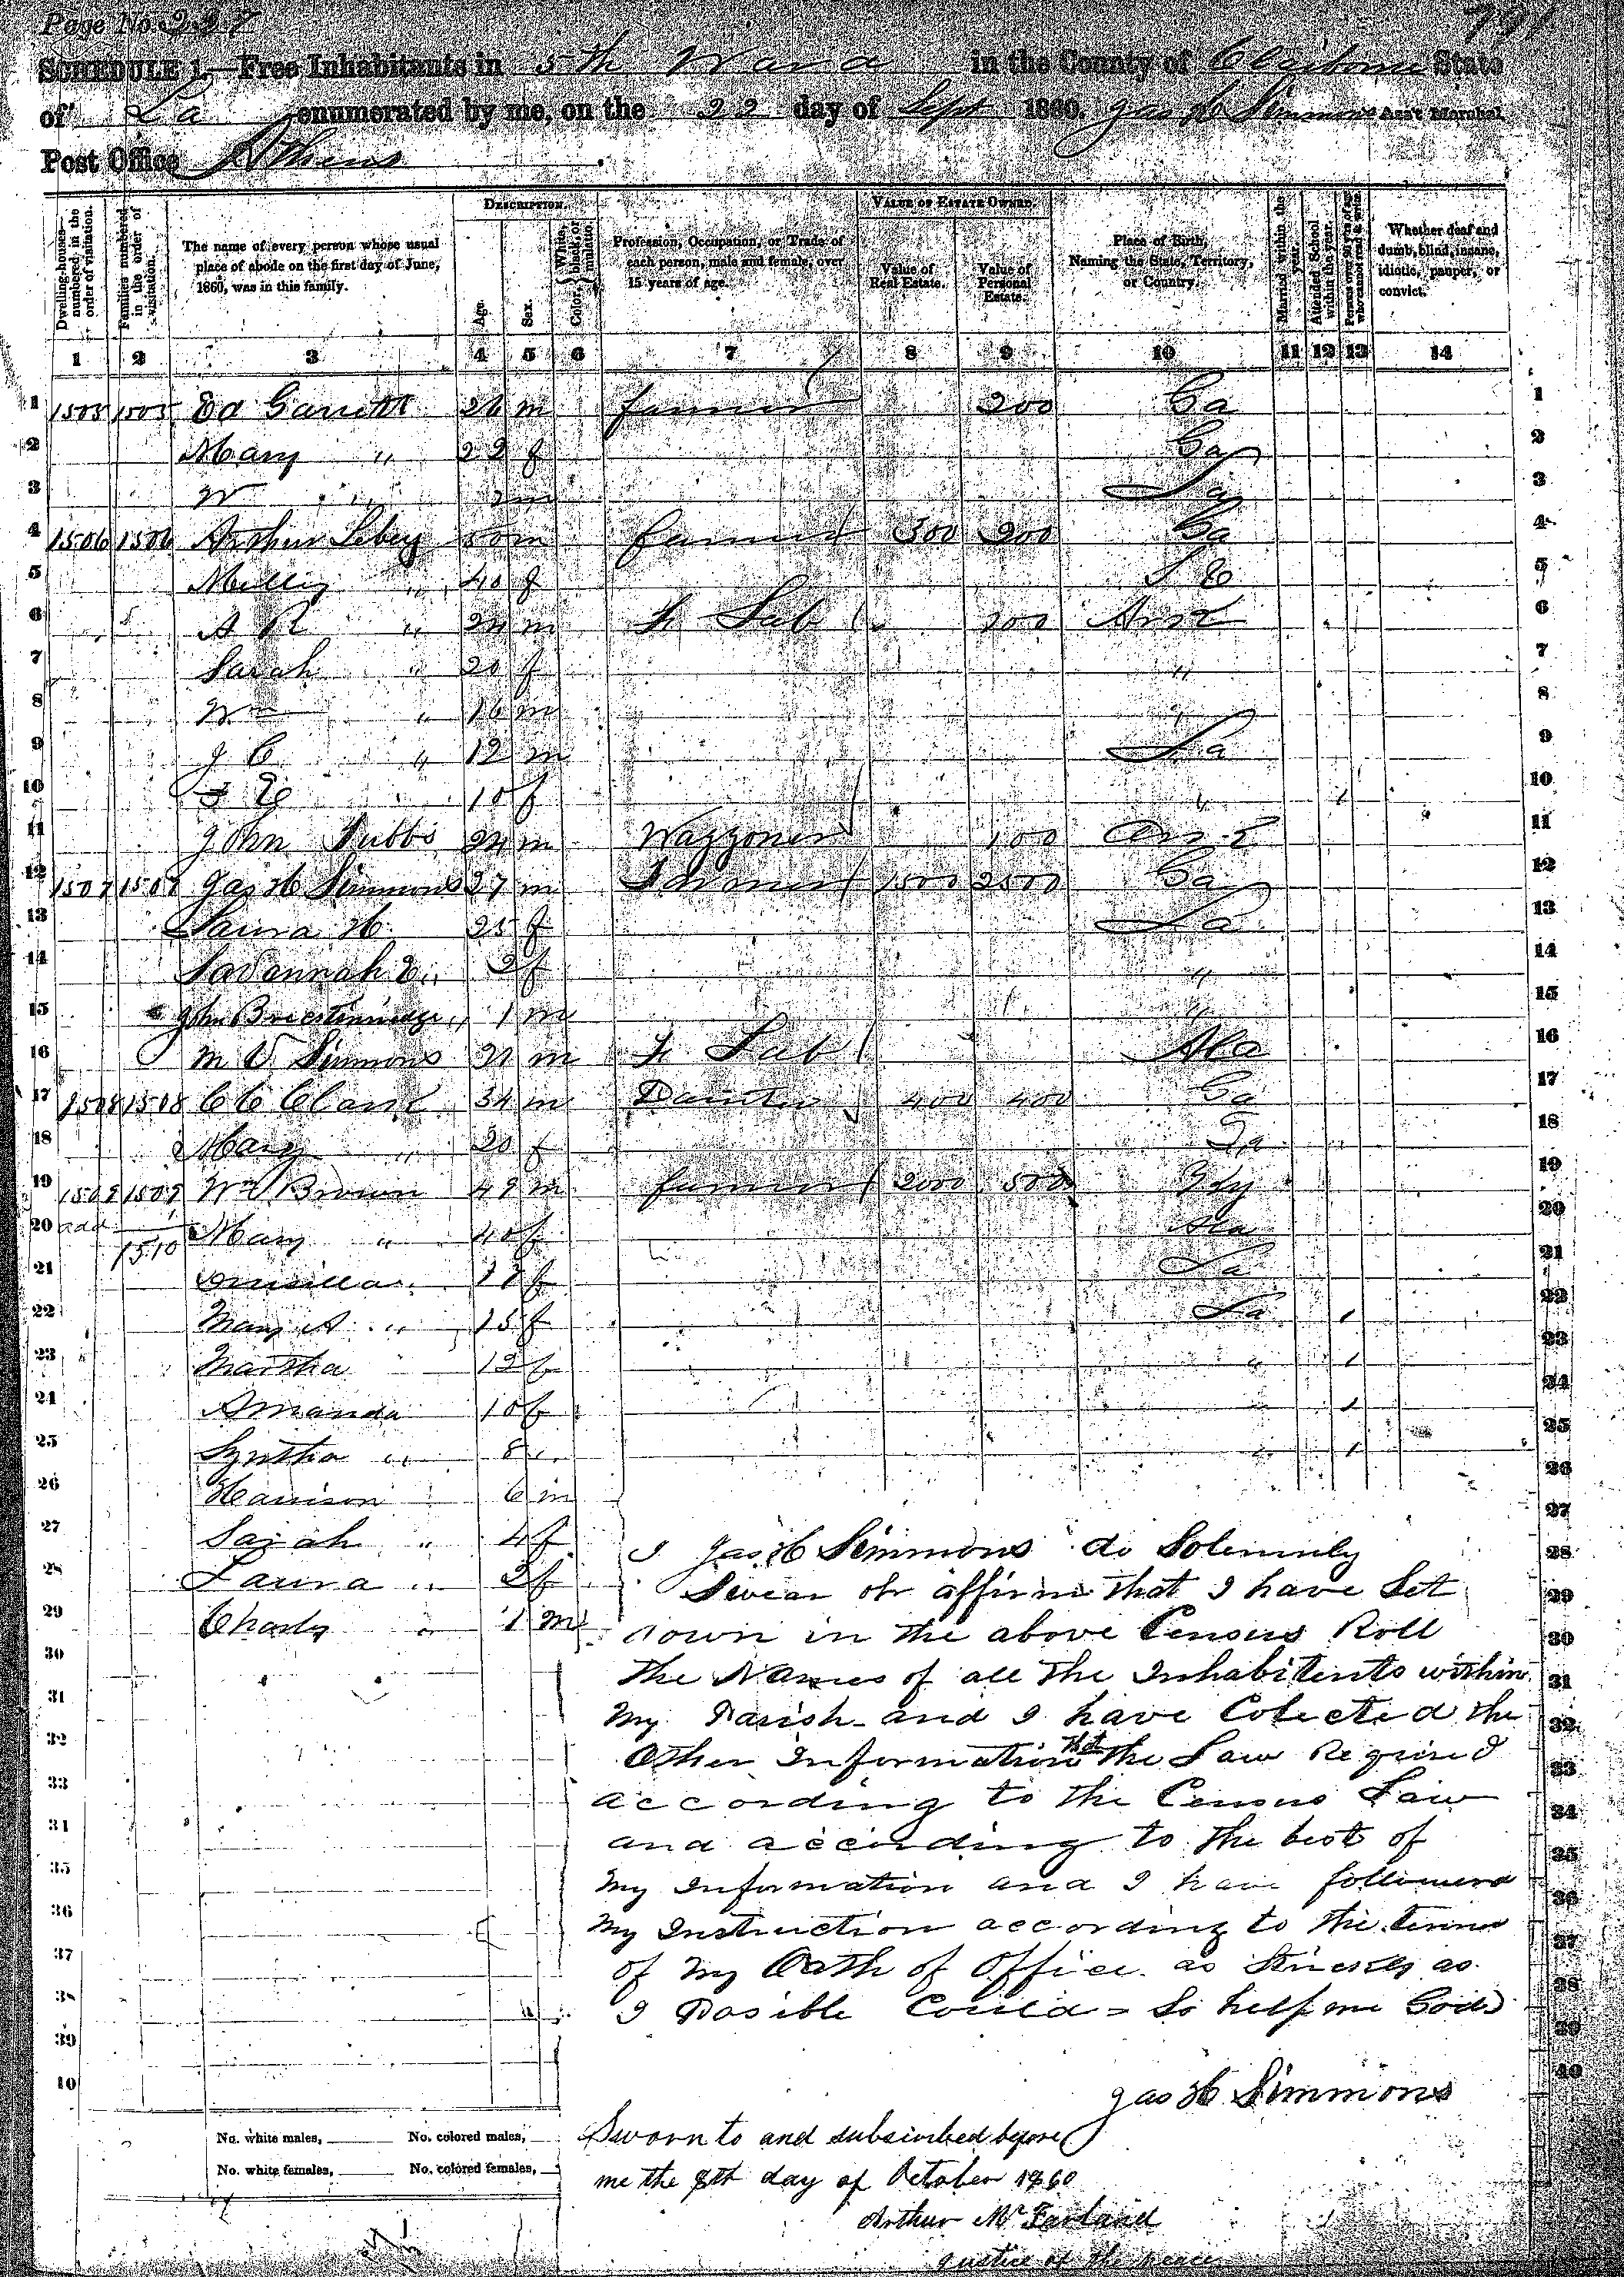 Page No. 227
SCHEDULE 1.—Free Inhabitants in 5th Ward in the County of Claiborne State
of La enumerated by me, on the 22 day of Sept 1860. Jas H Simmons Ass't Marshal.
Post Office Athens
DESCRIPTION.
VALUE OF ESTATE OWNED.
Dwelling-houses numbered in the order of visitation.
Families numbered in the order of visitation.
The name of every person whose usual place of abode on the first day of June, 1860, was in this family.
Age.
Sex.
Color, White, black, or mulatto.
Profession, Occupation, or Trade of each person, male and female, over 15 years of age.
Value of Real Estate.
Value of Personal Estate.
Place of Birth, Naming the State, Territory, or Country.
Married within the year.
Attended School within the year.
Persons over 20 y'rs of age who cannot read & write.
Whether deaf and dumb, blind, insane, idiotic, pauper, or convict.
1 2 3 4 5 6 7 8 9 10 11 12 13 14
1 1505 1505 Ed Garrett 26 m farmer 200 Ga 1
2 Mary " 22 f Ga 2
3 W " m La 3
4 1506 1506 Arthur 50 m farmer 300 200 Ga 4
5 " 40 f 5
6 A R " 24 m F Lab 200 6
7 Sarah " 20 f " 7
8 Wm " 16 m " 8
9 J C " 12 m La 9
10 " 10 f " 1 10
11 John Tubbs 24 m Waggoner 100 11
12 1507 1507 Jas H Simmons 27 m Farmer 1500 2500 Ga 12
13 Laura H. 25 f La 13
14 Savannah E. " 2 f " 14
15 John Breckinridge " 1 m " 15
16 M V Simmons 21 m F Lab Ala 16
17 1508 1508 34 m 400 400 Ga 17
18 Mary " 20 f 18
19 1509 1509 Wm Brown 49 m farmer 2000 500 Ky 19
20 add Mary " 40 f Ala 20
1510
21 f La 21
22 Mary A " 15 f La 1 22
23 Martha 12 f " 1 23
24 Amanda 10 f " 1 24
25 Syntha " 8 " " 1 25
26 Harrison " 6 m 26
27 Sarah " 4 f 27
28 Laura " 2 f 28
29 Charly " 1 m 29
30 30
31 31
32 32
33 33
34 34
35 35
36 36
37 37
38 38
39 39
40 40
I Jas H Simmons do Solemnly
Swear or affirm that I have Set
down in the above Census Roll
the Names of all the Inhabitents within
my Parish and I have Colected the
Other Information that the Law Required
according to the Census Law
and according to the best of
my Information and I have followed
my Instruction according to the terms
of my Oath of Office as Strickly as
I Posible Could = So help me God
Jas H Simmons
Sworn to and subscribed before
me the 8th day of October 1860
Arthur McFarland
Justice of the peace
No. white males, No. colored males,
No. white females, No. colored females,